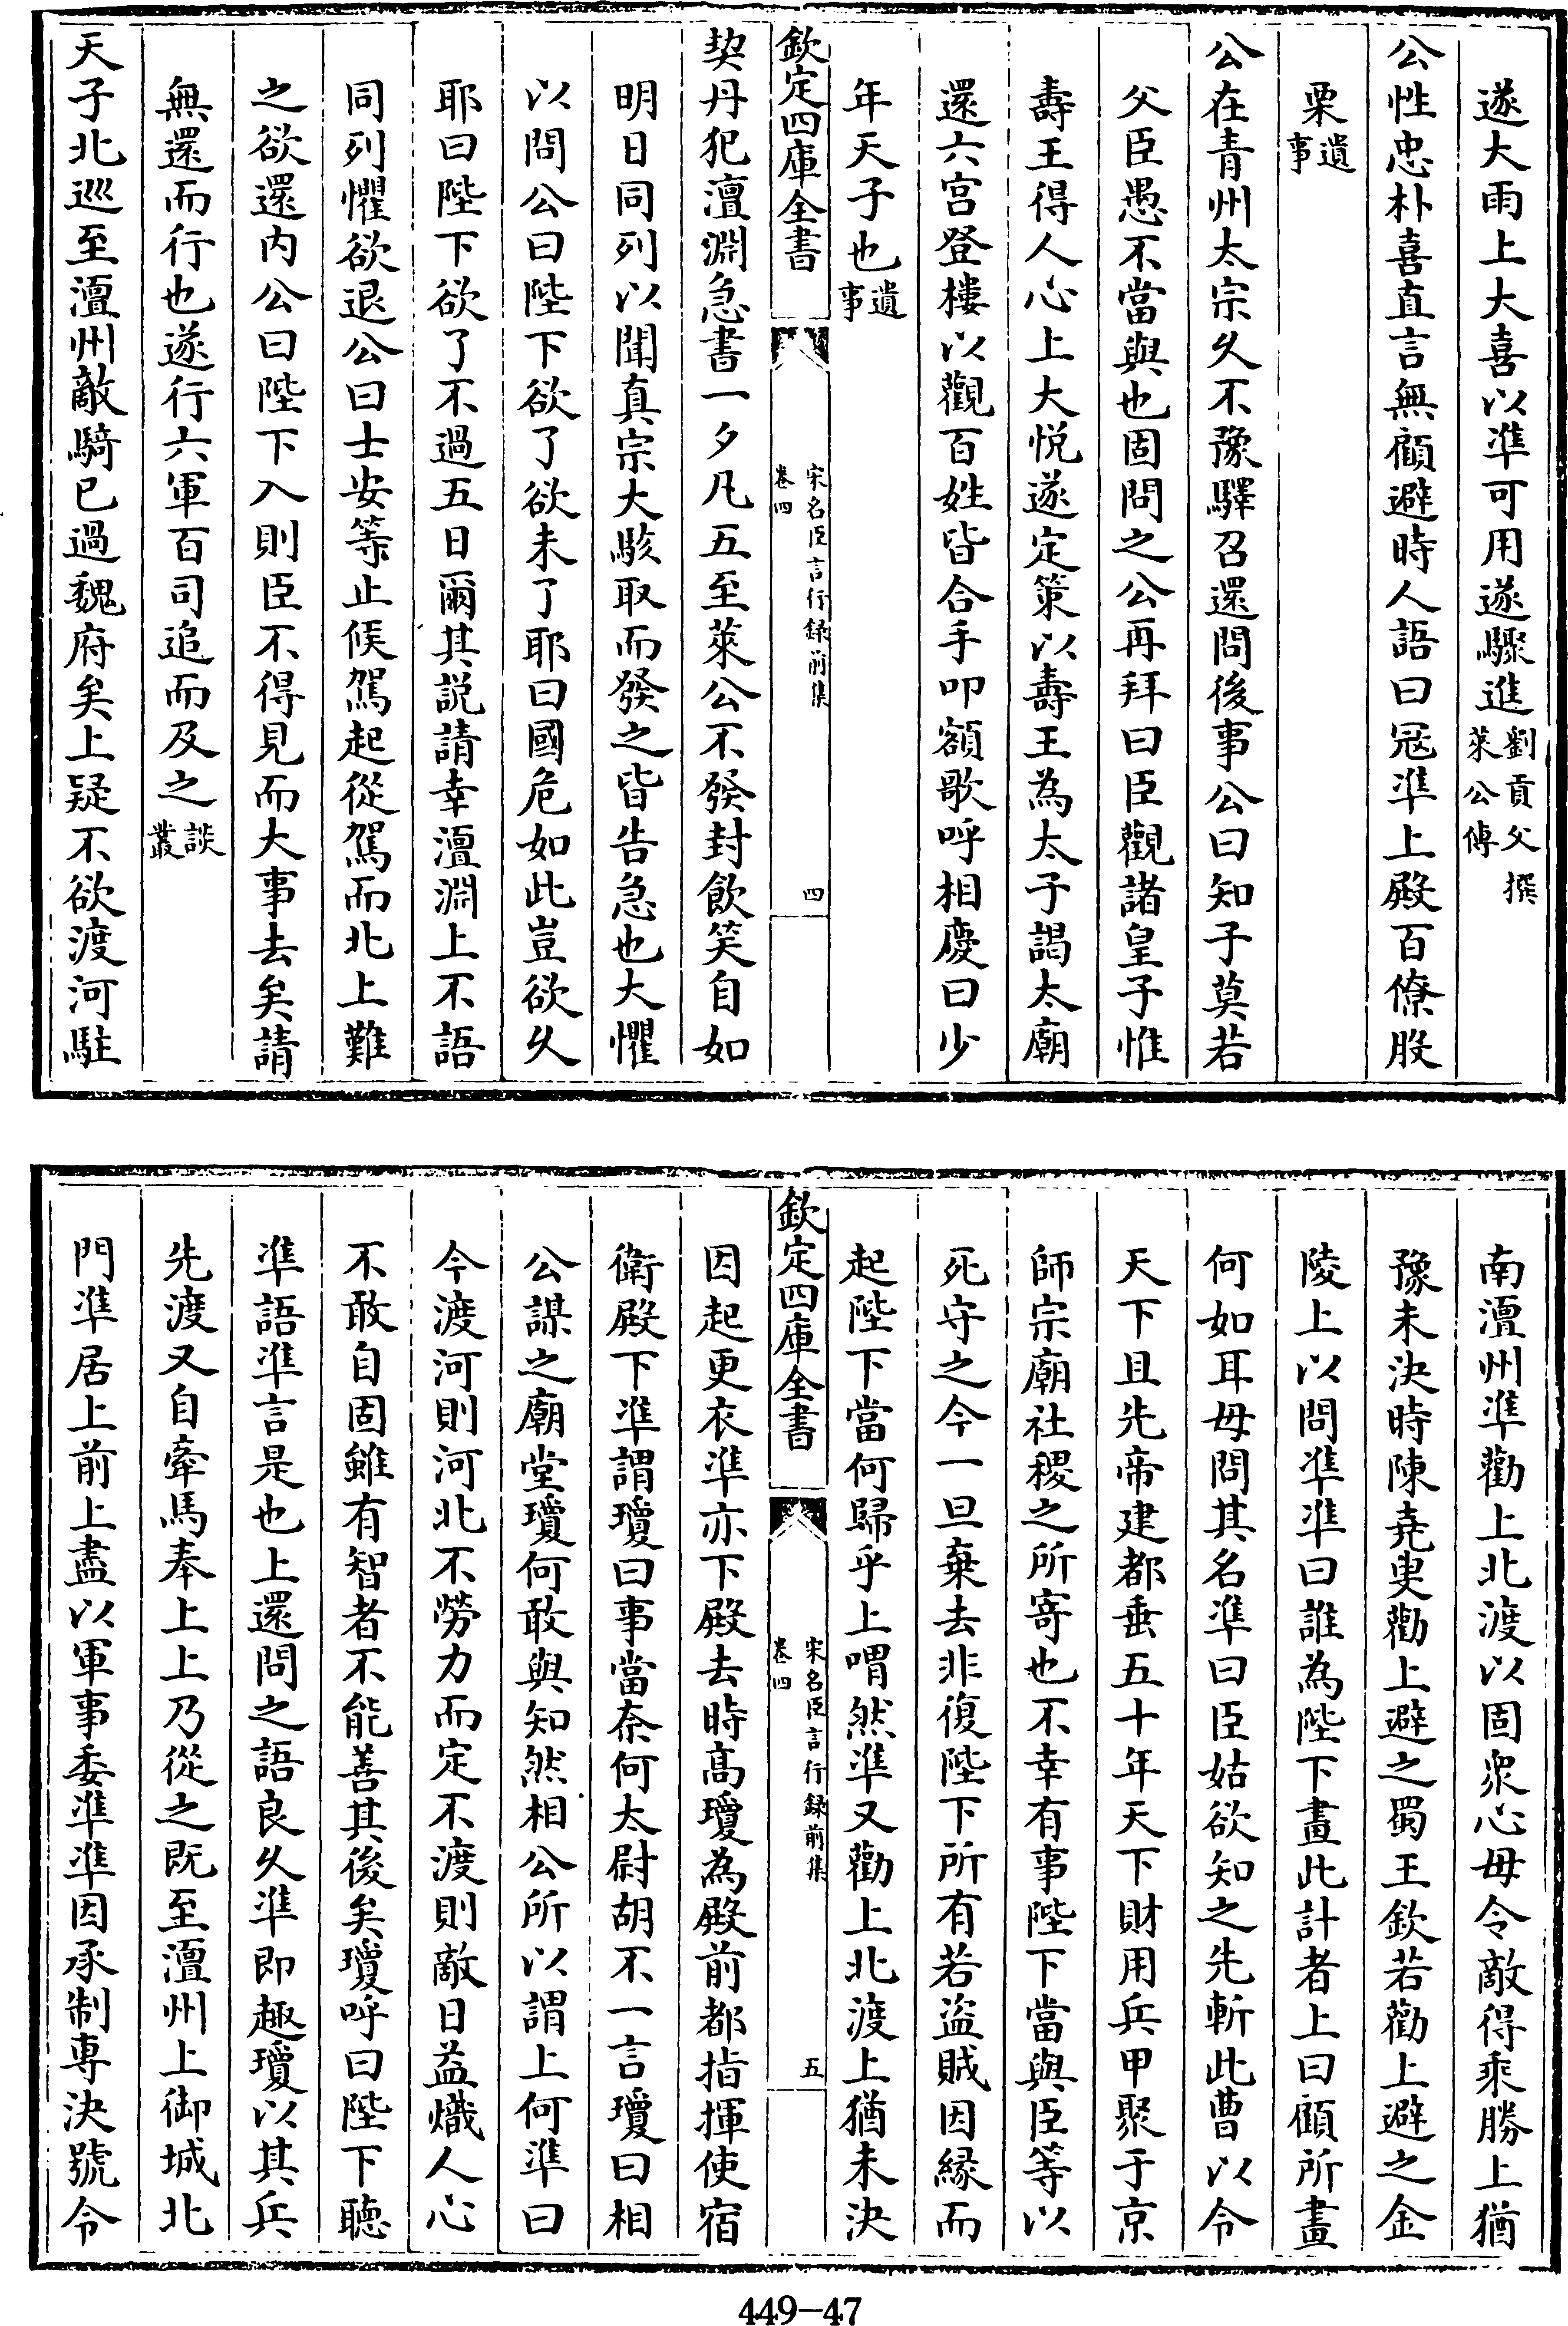 遂大雨上大喜以準可用遂驟進劉貢父撰萊公傳
公性忠朴喜直言無顧避時人語曰冦準上殿百僚股
栗遺事
公在青州太宗久不豫驛召還問後事公曰知子莫若
父臣愚不當與也固問之公再拜曰臣觀諸皇子惟
壽王得人心上大悦遂定策以壽王為太子謁太廟
還六宫登樓以觀百姓皆合手叩額歌呼相慶曰少
年天子也遺事
欽定四庫全書
宋名臣言行録前集
卷四
四
契丹犯澶淵急書一夕凡五至萊公不發封飲笑自如
明日同列以聞真宗大駭取而發之皆告急也大懼
以問公曰陛下欲了欲未了耶曰國危如此豈欲久
耶曰陛下欲了不過五日爾其説請幸澶淵上不語
同列懼欲退公曰士安等止候駕起從駕而北上難
之欲還内公曰陛下入則臣不得見而大事去矣請
無還而行也遂行六軍百司追而及之談叢
天子北巡至澶州敵騎已過魏府矣上疑不欲渡河駐
南澶州準勸上北渡以固衆心毋令敵得乘勝上猶
豫未決時陳堯叟勸上避之蜀王欽若勸上避之金
陵上以問準準曰誰為陛下畫此計者上曰顧所畫
何如耳毋問其名準曰臣姑欲知之先斬此曹以令
天下且先帝建都垂五十年天下財用兵甲聚于京
師宗廟社稷之所寄也不幸有事陛下當與臣等以
死守之今一旦棄去非復陛下所有若盜賊因緣而
起陛下當何歸乎上喟然準又勸上北渡上猶未決
欽定四庫全書
宋名臣言行録前集
卷四
五
因起更衣準亦下殿去時髙瓊為殿前都指揮使宿
衛殿下準謂瓊曰事當奈何太尉胡不一言瓊曰相
公謀之廟堂瓊何敢與知然相公所以謂上何準曰
今渡河則河北不勞力而定不渡則敵日益熾人心
不敢自固雖有智者不能善其後矣瓊呼曰陛下聽
準語準言是也上還問之語良久準即趣瓊以其兵
先渡又自牽馬奉上上乃從之既至澶州上御城北
門準居上前上盡以軍事委準準因承制專決號令
449-47